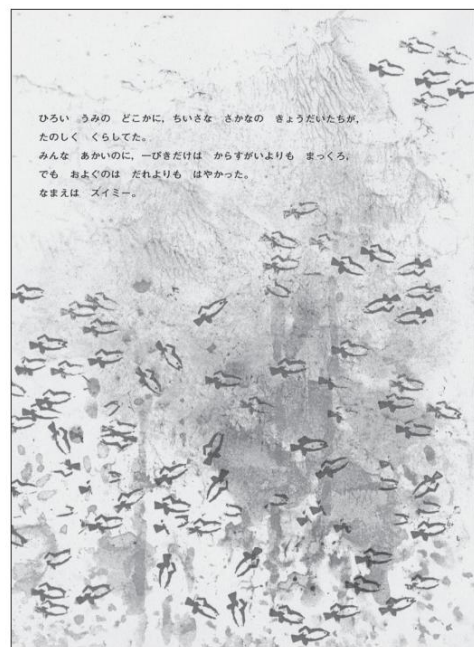 ひろい　うみの　どこかに，ちいさな　さかなの　きょうだいたちが，
たのしく　くらしてた。
みんな　あかいのに，一ぴきだけは　からすがいよりも　まっくろ，
でも　およぐのは　だれよりも　はやかった。
なまえは　スイミー。